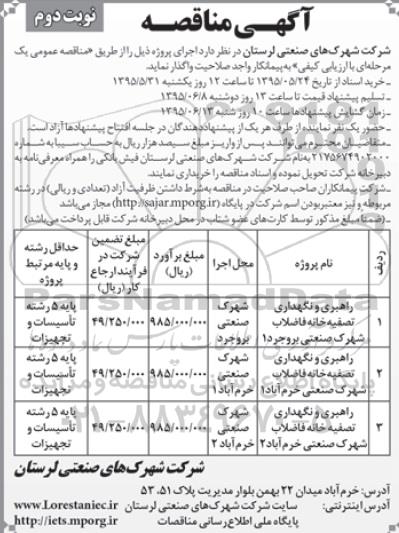 آگهی مناقصه
نوبت دوم
شرکت شهرک‌های صنعتی لرستان در نظر دارد اجرای پروژه ذیل را از طریق «مناقصه عمومی یک
مرحله‌ای با ارزیابی کیفی» به پیمانکار واجد صلاحیت واگذار نماید.
ـ خرید اسناد از تاریخ ۱۳۹۵/۰۵/۲۴ تا ساعت ۱۲ روز یکشنبه ۱۳۹۵/۵/۳۱
ـ تسلیم پیشنهاد قیمت تا ساعت ۱۳ روز دوشنبه ۱۳۹۵/۰۶/۸
ـ زمان گشایش پیشنهادها ساعت ۱۰ روز شنبه ۱۳۹۵/۰۶/۱۳
ـ حضور یک نفر نماینده از طرف هر یک از پیشنهاددهندگان در جلسه افتتاح پیشنهادها آزاد است.
ـ متقاضیان محترم می‌توانند پس از واریز مبلغ سیصد هزار ریال به حساب سیبا به شماره
۲۱۷۵۶۷۴۹۰۲۰۰۰ به‌نام شرکت شهرک‌های صنعتی لرستان فیش بانکی را همراه معرفی‌نامه به
دبیرخانه شرکت تحویل نموده و اسناد مناقصه را خریداری نمایند.
ـ شرکت پیمانکاران صاحب صلاحیت در مناقصه به شرط داشتن ظرفیت آزاد (تعدادی و ریالی) در رشته
مربوطه و نیز معتبر بودن اسم شرکت در پایگاه (http://sajar.mporg.ir) مجاز می‌باشد
ـ (ضمنا مبلغ مذکور توسط کارت‌های عضو شتاب در محل دبیرخانه شرکت قابل پرداخت می‌باشد)
ردیف
نام پروژه
محل اجرا
مبلغ برآورد
(ریال)
مبلغ تضمین
شرکت در
فرآیند ارجاع
کار (ریال)
حداقل رشته
و پایه مرتبط
پروژه
۱
راهبری و نگهداری
تصفیه خانه فاضلاب
شهرک صنعتی بروجرد۱
شهرک
صنعتی
بروجرد
۹۸۵/۰۰۰/۰۰۰
۴۹/۲۵۰/۰۰۰
پایه ۵ رشته
تأسیسات و
تجهیزات
۲
راهبری و نگهداری
تصفیه خانه فاضلاب
شهرک صنعتی خرم آباد۱
شهرک
صنعتی
خرم آباد۱
۹۸۵/۰۰۰/۰۰۰
۴۹/۲۵۰/۰۰۰
پایه ۵ رشته
تأسیسات و
تجهیزات
۳
راهبری و نگهداری
تصفیه خانه فاضلاب
شهرک صنعتی خرم آباد۲
شهرک
صنعتی
خرم آباد۲
۹۸۵/۰۰۰/۰۰۰
۴۹/۲۵۰/۰۰۰
پایه ۵ رشته
تأسیسات و
تجهیزات
شرکت شهرک‌های صنعتی لرستان
آدرس: خرم آباد میدان ۲۲ بهمن بلوار مدیریت پلاک ۵۱، ۵۳
آدرس اینترنتی: سایت شرکت شهرک‌های صنعتی لرستان www.Lorestaniec.ir
پایگاه ملی اطلاع رسانی مناقصات http://iets.mporg.ir